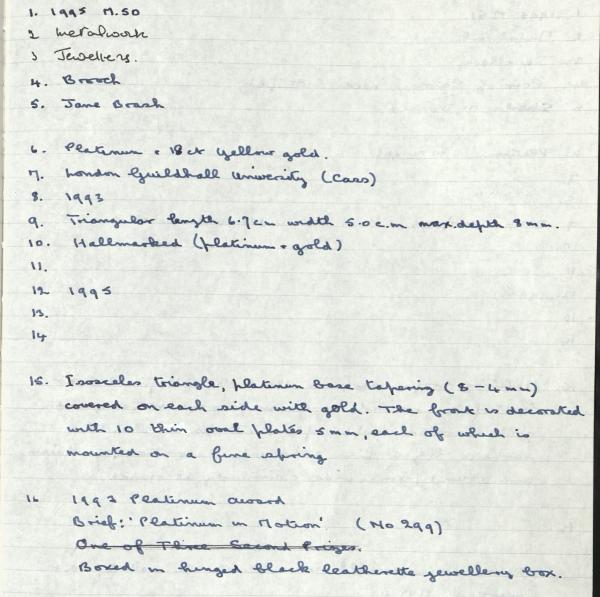 1. 1995 M.50
2 metalwork
3 Jewellers.
4. Brooch
5. Jane Brash
6. Platinum + 18 ct yellow gold.
7. London Guildhall University (Cass)
8. 1993
9. Triangular length 6.7cm width 5.0c.m max.depth 8mm.
10. Hallmarked (platinum + gold)
11.
12 1995
13.
14
15. Isosceles triangle, platinum base tapering (8-4mm)
covered on each side with gold. The front is decorated
with 10 thin oval plates 5mm, each of which is
mounted on a fine spring
16 1993 Platinum award
Brief: 'Platinum in Motion' (No 299)
One of Three Second Prizes.
Boxed in hinged black leatherette jewellery box.